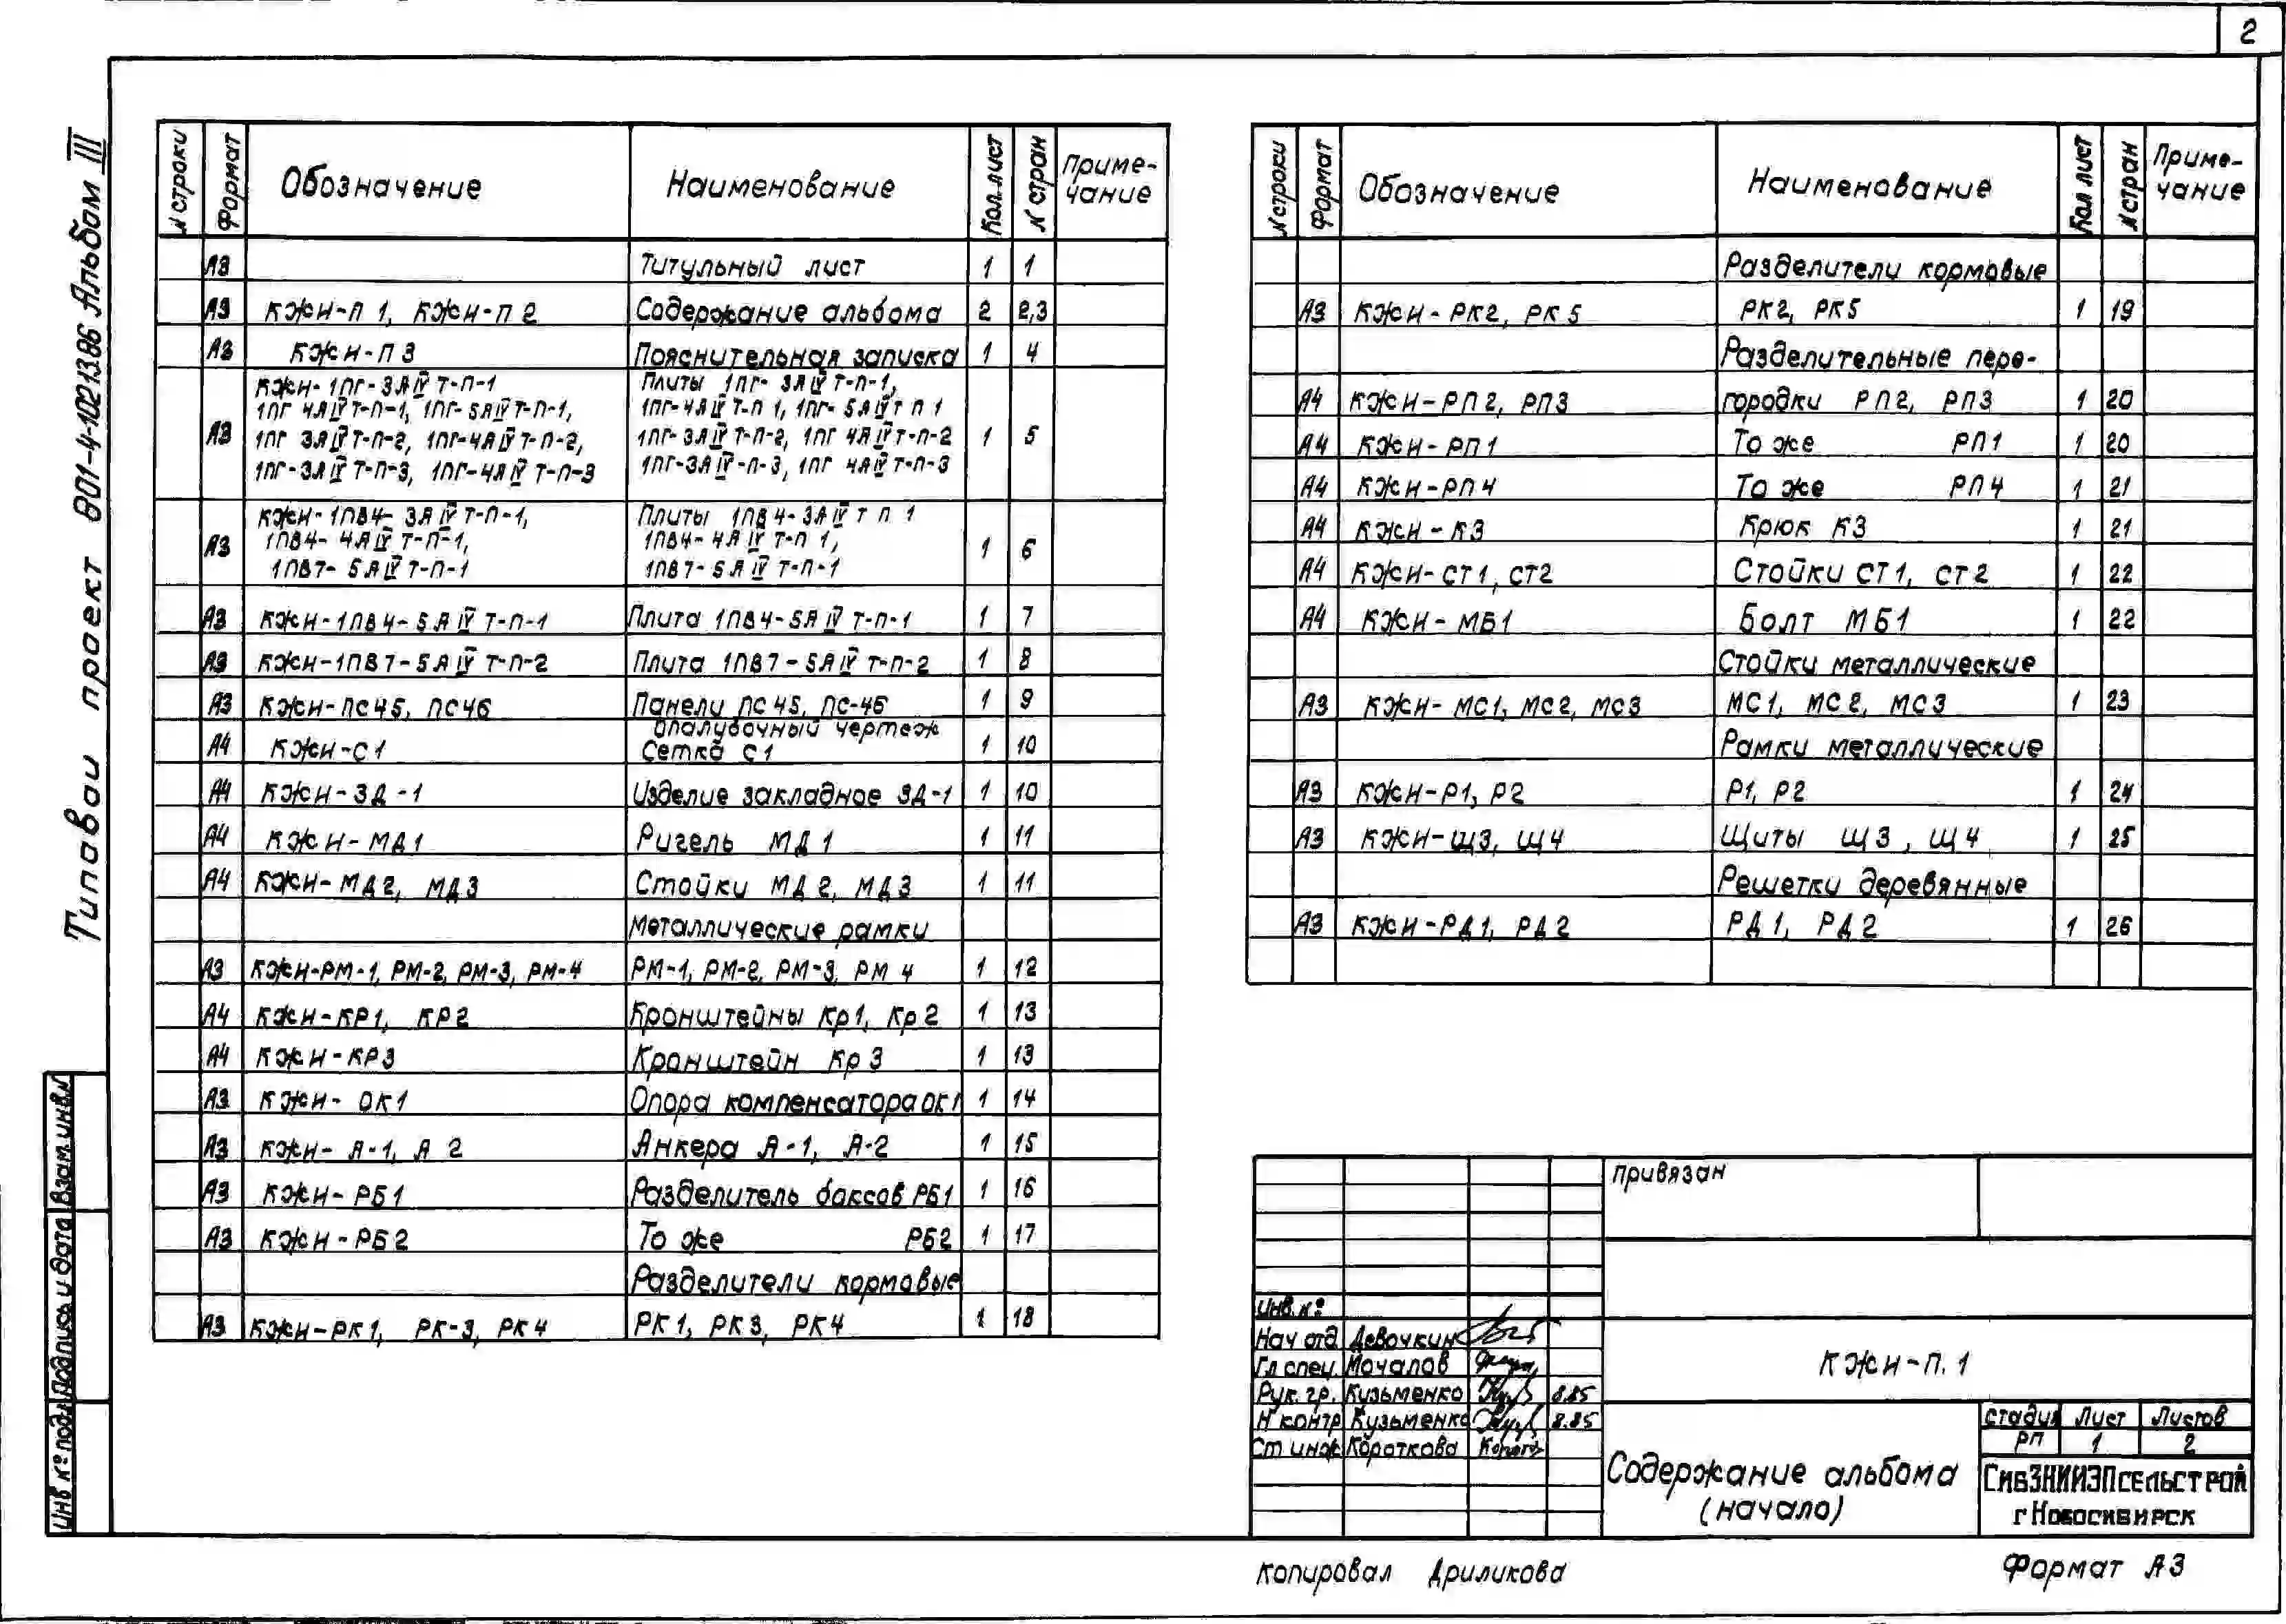 2
Типовой проект 801-4-102.13.86 Альбом III
N строки Формат Обозначение Наименование Кол. лист N стран Приме-
чание
А3 Титульный лист 1 1
А3 КЖИ-П 1, КЖИ-П 2 Содержание альбома 2 2,3
А3 КЖИ-П 3 Пояснительная записка 1 4
КЖИ-1ПГ-3АIVТ-П-1 Плиты 1ПГ-3АIVТ-П-1,
1ПГ 4АIVТ-П-1, 1ПГ-5АIVТ-П-1, 1ПГ-4АIVТ-П 1, 1ПГ-5АIVТ П 1
А3 1ПГ 3АIVТ-П-2, 1ПГ-4АIVТ-П-2, 1ПГ-3АIVТ-П-2, 1ПГ 4АIVТ-П-2 1 5
1ПГ-3АIVТ-П-3, 1ПГ-4АIVТ-П-3 1ПГ-3АIV-П-3, 1ПГ 4АIVТ-П-3
КЖИ-1ПВ4-3АIVТ-П-1, Плиты 1ПВ4-3АIVТ П 1
1ПВ4-4АIVТ-П-1, 1ПВ4-4АIVТ-П 1,
А3 1ПВ7-5АIVТ-П-1 1ПВ7-5АIVТ-П-1 1 6
А3 КЖИ-1ПВ4-5АIVТ-П-1 Плита 1ПВ4-5АIVТ-П-1 1 7
А3 КЖИ-1ПВ7-5АIVТ-П-2 Плита 1ПВ7-5АIVТ-П-2 1 8
А3 КЖИ-ПС45, ПС46 Панели ПС45, ПС-46 1 9
опалубочный чертеж
А4 КЖИ-С1 Сетка С1 1 10
А4 КЖИ-ЗД-1 Изделие закладное ЗД-1 1 10
А4 КЖИ-МД1 Ригель МД1 1 11
А4 КЖИ-МД2, МД3 Стойки МД2, МД3 1 11
Металлические рамки
А3 КЖИ-РМ-1, РМ-2, РМ-3, РМ-4 РМ-1, РМ-2, РМ-3, РМ 4 1 12
А4 КЖИ-КР1, КР2 Кронштейны Кр1, Кр2 1 13
А4 КЖИ-КР3 Кронштейн Кр3 1 13
А3 КЖИ-ОК1 Опора компенсатора ОК1 1 14
А3 КЖИ-А-1, А 2 Анкера А-1, А-2 1 15
А3 КЖИ-РБ1 Разделитель боксов РБ1 1 16
А3 КЖИ-РБ2 То же РБ2 1 17
Разделители кормовые
А3 КЖИ-РК1, РК-3, РК4 РК1, РК3, РК4 1 18
N строки Формат Обозначение Наименование Кол лист N стран Приме-
чание
Разделители кормовые
А3 КЖИ-РК2, РК5 РК2, РК5 1 19
Разделительные пере-
А4 КЖИ-РП2, РП3 городки РП2, РП3 1 20
А4 КЖИ-РП1 То же РП1 1 20
А4 КЖИ-РП4 То же РП4 1 21
А4 КЖИ-К3 Крюк К3 1 21
А4 КЖИ-СТ1, СТ2 Стойки СТ1, СТ2 1 22
А4 КЖИ-МБ1 Болт МБ1 1 22
Стойки металлические
А3 КЖИ-МС1, МС2, МС3 МС1, МС2, МС3 1 23
Рамки металлические
А3 КЖИ-Р1, Р2 Р1, Р2 1 24
А3 КЖИ-Щ3, Щ4 Щиты Щ3, Щ4 1 25
Решетки деревянные
А3 КЖИ-РД1, РД2 РД1, РД2 1 26
Привязан
Инв. №
Нач отд. Девочкин
Гл спец. Мочалов
Рук. гр. Кузьменко 8.85
Н контр Кузьменко 8.85
Ст инж Короткова
КЖИ-П. 1
Содержание альбома
(начало)
Стадия Лист Листов
РП 1 2
СибЗНИИЭПсельстрой
г Новосибирск
Инв № подл Подпись и дата Взам. инв. N
Копировал Дриликова Формат А3